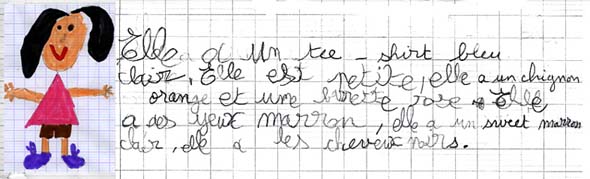 Elle a un tee-shirt bleu
clair, Elle est petite, elle a un chignon
orange et une rose Elle
a des yeux marron, elle a un sweet marron
clair, elle a les cheveux noirs.